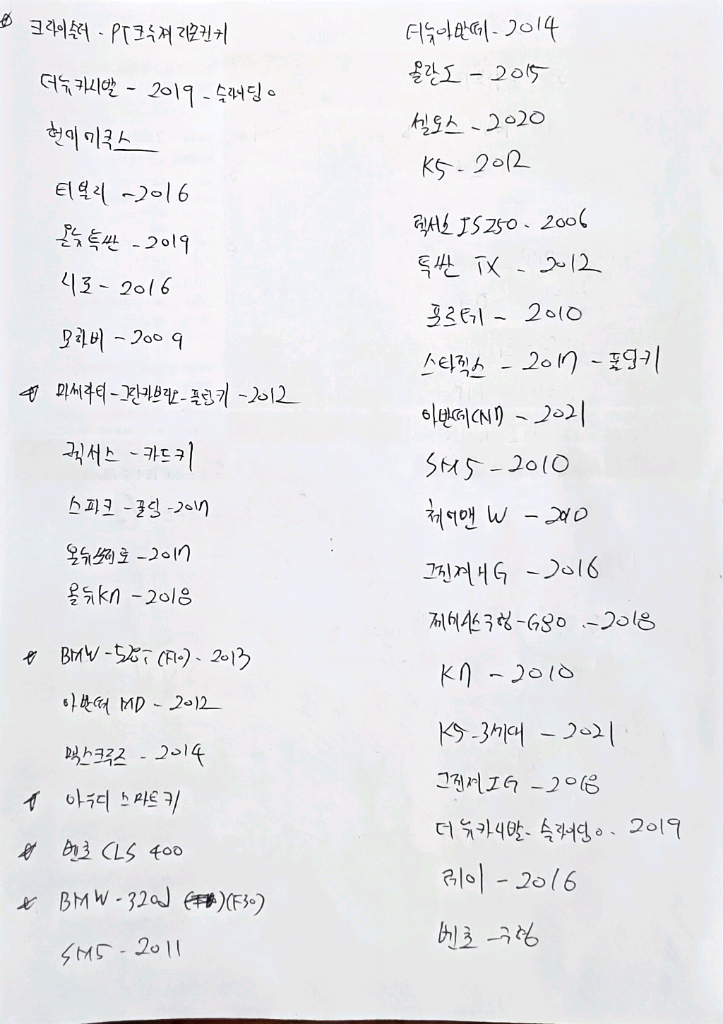 크라이슬러 - PT크루져 리모컨키
더뉴카니발 - 2019 - 슬라이딩 o
현대 에쿠스
티볼리 - 2016
올뉴투싼 - 2019
니로 - 2016
모하비 - 2009
마세라티 - 그란카브리오 - 폴딩키 - 2012
렉서스 - 카드키
스파크 - 폴딩 - 2017
올뉴쏘렌토 - 2017
올뉴K7 - 2018
BMW - 528i (F10) - 2013
아반떼 MD - 2012
맥스크루즈 - 2014
아우디 스마트키
벤츠 CLS 400
BMW - 320d (F30)
SM5 - 2011
더뉴아반떼 - 2014
올란도 - 2015
셀토스 - 2020
K5 - 2012
렉서스 IS250 - 2006
투싼 IX - 2012
포르테 - 2010
스타렉스 - 2017 - 폴딩키
아반떼(CN7) - 2021
SM5 - 2010
체어맨 W - 2010
그랜져HG - 2016
제네시스구형 - G80 - 2018
K7 - 2010
K5 - 3세대 - 2021
그랜져IG - 2018
더 뉴카니발 - 슬라이딩 o - 2019
레이 - 2016
벤츠 - 구형